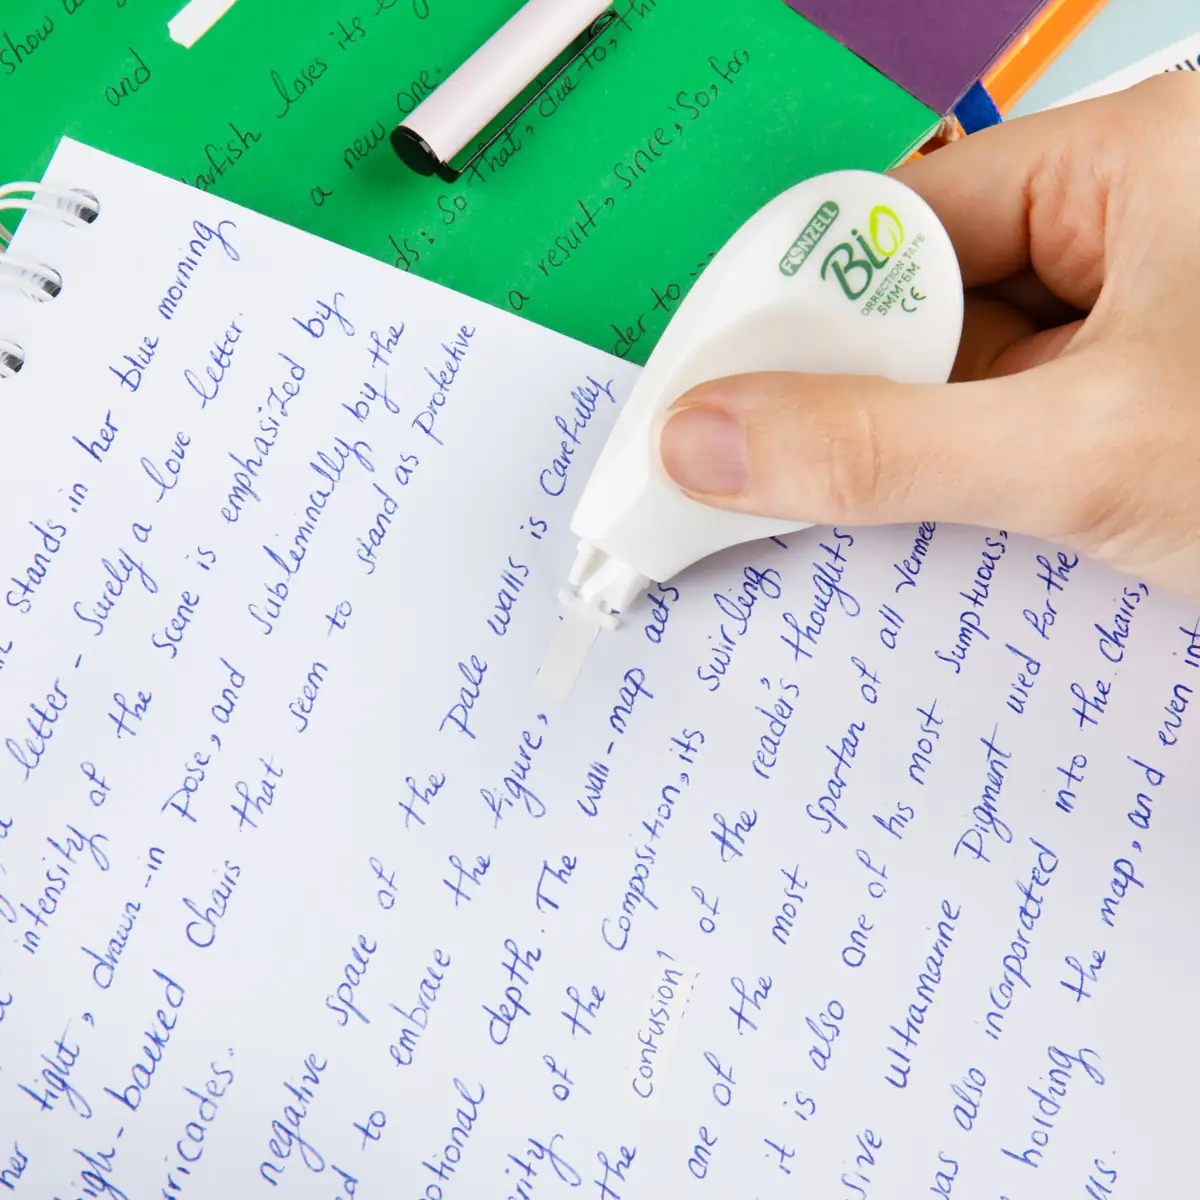 show
and
loses its
a new one.
So that, due to,
a result, since, So, for,
FONZELL
Bio
CORRECTION TAPE
5MM*6M
CE
stands in her blue morning
letter - Surely a love letter.
intensity of the scene is emphasized by
tight, drawn-in pose, and subliminally by the
high-backed chairs that seem to stand as protective
negative space of the pale walls is carefully
to embrace the figure,
depth. The wall-map acts
of the composition, its swirling
the confusion of the reader's thoughts
one of the most spartan of all
it is also one of his most sumptuous,
ultramarine pigment used for the
also incorporated into the chairs,
holding the map, and even